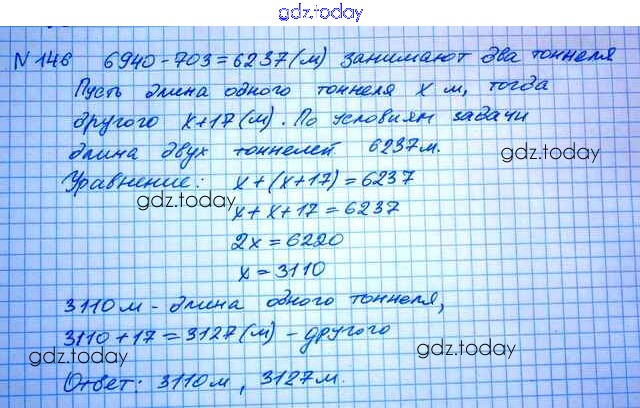 gdz.today
N 146 6940-703=6237(м) занимают два тоннеля
Пусть длина одного тоннеля x м, тогда
другого x+17(м). По условиям задачи
длина двух тоннелей 6237м.
gdz.today
Уравнение: x+(x+17)=6237
gdz.today
x+x+17=6237
2x=6220
x=3110
3110м - длина одного тоннеля,
3110+17=3127(м) - другого
gdz.today
gdz.today
Ответ: 3110м, 3127м.